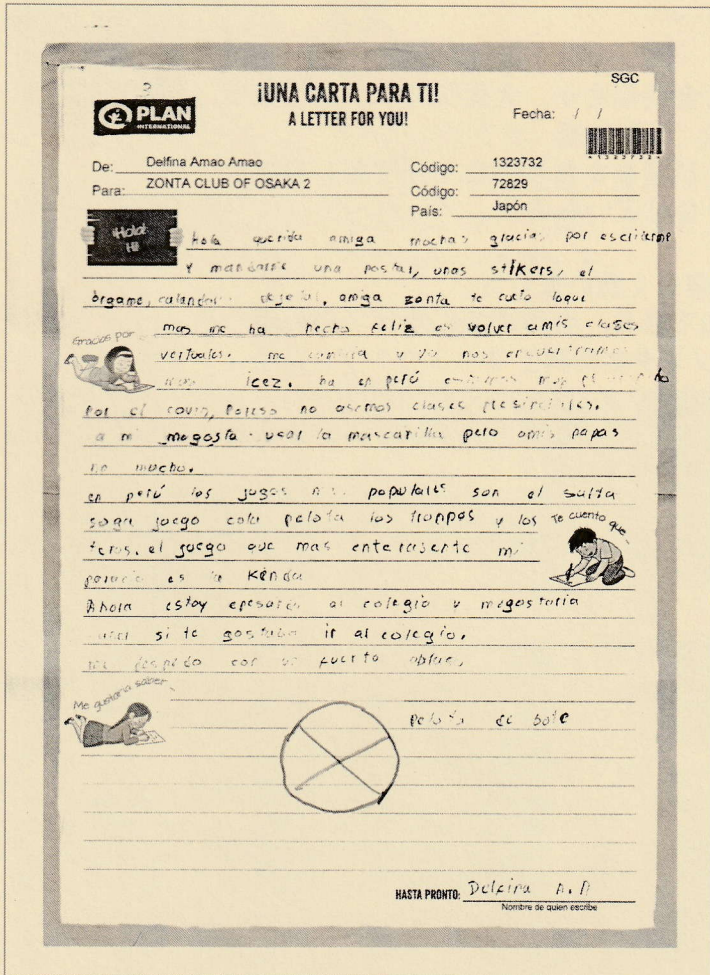 3
SGC
PLAN
INTERNATIONAL
¡UNA CARTA PARA TI!
A LETTER FOR YOU!
Fecha: / /
*1323732*
De: Delfina Amao Amao Código: 1323732
Para: ZONTA CLUB OF OSAKA 2 Código: 72829
País: Japón
¡Hola!
Hi!
hola querida amiga muchas gracias por escribirme
y mandarme una postal, unos stikers, el
órgame, calandar amiga zonta te cueto loque
Gracias por
mas me ha hecho feliz es volver amis clases
vertuales. me y yo nos
icez. ha en perú
por el covin, Poreso no asemos clases presinciales.
a mi megosta usar la mascarilla pero amis papas
no mucho.
en perú los jugos mas populares son el salta
soga juego cola pelota los trompos y los
Te cuento que...
teros. el juego que mas enterajente mi
es la Kenda
Ahora estoy al colegio y megostaria
si te gostaba ir al colegio.
me despido con un fuerto
Me gustaria saber...
pelota de bole
HASTA PRONTO: Delfina A. A
Nombre de quien escribe